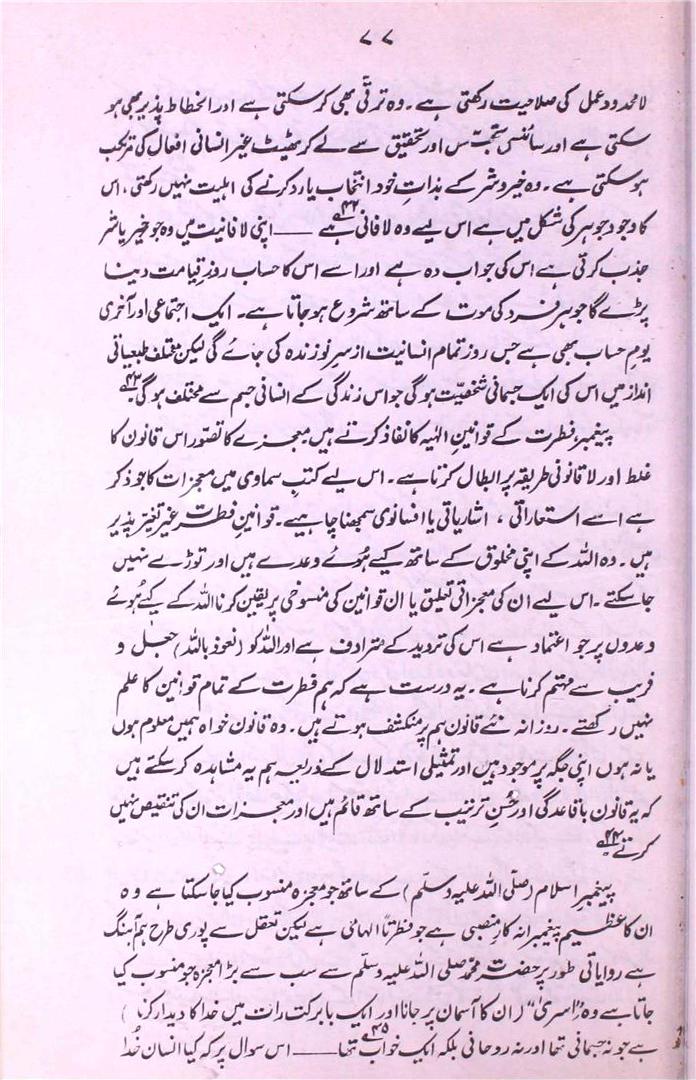 ۷۷
لامحدود عمل کی صلاحیت رکھتی ہے۔ وہ ترقی بھی کر سکتی ہے اور انحطاط پذیر بھی ہو
سکتی ہے اور سائنسی تجسّس اور تحقیق سے لے کر ٹھیٹ غیر انسانی افعال کی مرتکب
ہو سکتی ہے۔ وہ خیر و شر کے بذاتِ خود انتخاب یا رد کرنے کی اہلیت نہیں رکھتی، اس
کا وجود جوہر کی شکل میں ہے اس لیے وہ لافانی ہے ۴۲؎ —— اپنی لافانیت میں وہ جو خیر یا شر
جذب کرتی ہے اس کی جواب دہ ہے اور اسے اس کا حساب روزِ قیامت دینا
پڑے گا جو ہر فرد کی موت کے ساتھ شروع ہو جاتا ہے۔ ایک اجتماعی اور آخری
یومِ حساب بھی ہے جس روز تمام انسانیت از سرِ نو زندہ کی جائے گی لیکن مختلف طبیعیاتی
انداز میں اس کی ایک جسمانی شخصیّت ہو گی جو اس زندگی کے انسانی جسم سے مختلف ہو گی ۴۳؎
پیغمبر فطرت کے قوانینِ الٰہیہ کا نفاذ کرتے ہیں معجزے کا تصوّر اس قانون کا
غلط اور لاقانونی طریقہ پر ابطال کرنا ہے۔ اس لیے کتبِ سماوی میں معجزات کا جو ذکر
ہے اسے استعاراتی، اشاریاتی یا افسانوی سمجھنا چاہیے۔ قوانینِ فطرت غیر تغیّر پذیر
ہیں۔ وہ اللہ کے اپنی مخلوق کے ساتھ کیے ہُوئے وعدے ہیں اور توڑے نہیں
جا سکتے۔ اس لیے ان کی معجزاتی تعلیق یا ان قوانین کی منسوخی پر یقین کرنا اللہ کے کیے ہُوئے
وعدوں پر جو اعتماد ہے اس کی تردید کے مترادف ہے اور اللہ کو (نعوذ باللہ) جعل و
فریب سے متہم کرنا ہے۔ یہ درست ہے کہ ہم فطرت کے تمام قوانین کا علم
نہیں رکھتے۔ روزانہ نئے قانون ہم پر منکشف ہوتے ہیں۔ وہ قانون خواہ ہمیں معلوم ہوں
یا نہ ہوں اپنی جگہ پر موجود ہیں اور تمثیلی استدلال کے ذریعہ ہم یہ مشاہدہ کر سکتے ہیں
کہ یہ قانون باقاعدگی اور حُسنِ ترتیب کے ساتھ قائم ہیں اور معجزات ان کی تنقیص نہیں
کرتے ۴۴؎
پیغمبرِ اسلام (صلّی اللہ علیہ وسلّم) کے ساتھ جو معجزہ منسوب کیا جا سکتا ہے وہ
ان کا عظیم پیغمبرانہ کارِ منصبی ہے جو فطرتاً الہامی ہے لیکن تعقل سے پوری طرح ہم آہنگ
ہے روایاتی طور پر حضرت محمّد صلی اللہ علیہ وسلّم سے سب سے بڑا معجزہ جو منسوب کیا
جاتا ہے وہ "اسریٰ" (ان کا آسمان پر جانا اور ایک بابرکت رات میں خدا کا دیدار کرنا)
ہے جو نہ جسمانی تھا اور نہ روحانی بلکہ ایک خواب تھا ۴۵؎ —— اس سوال پر کہ کیا انسان خُدا